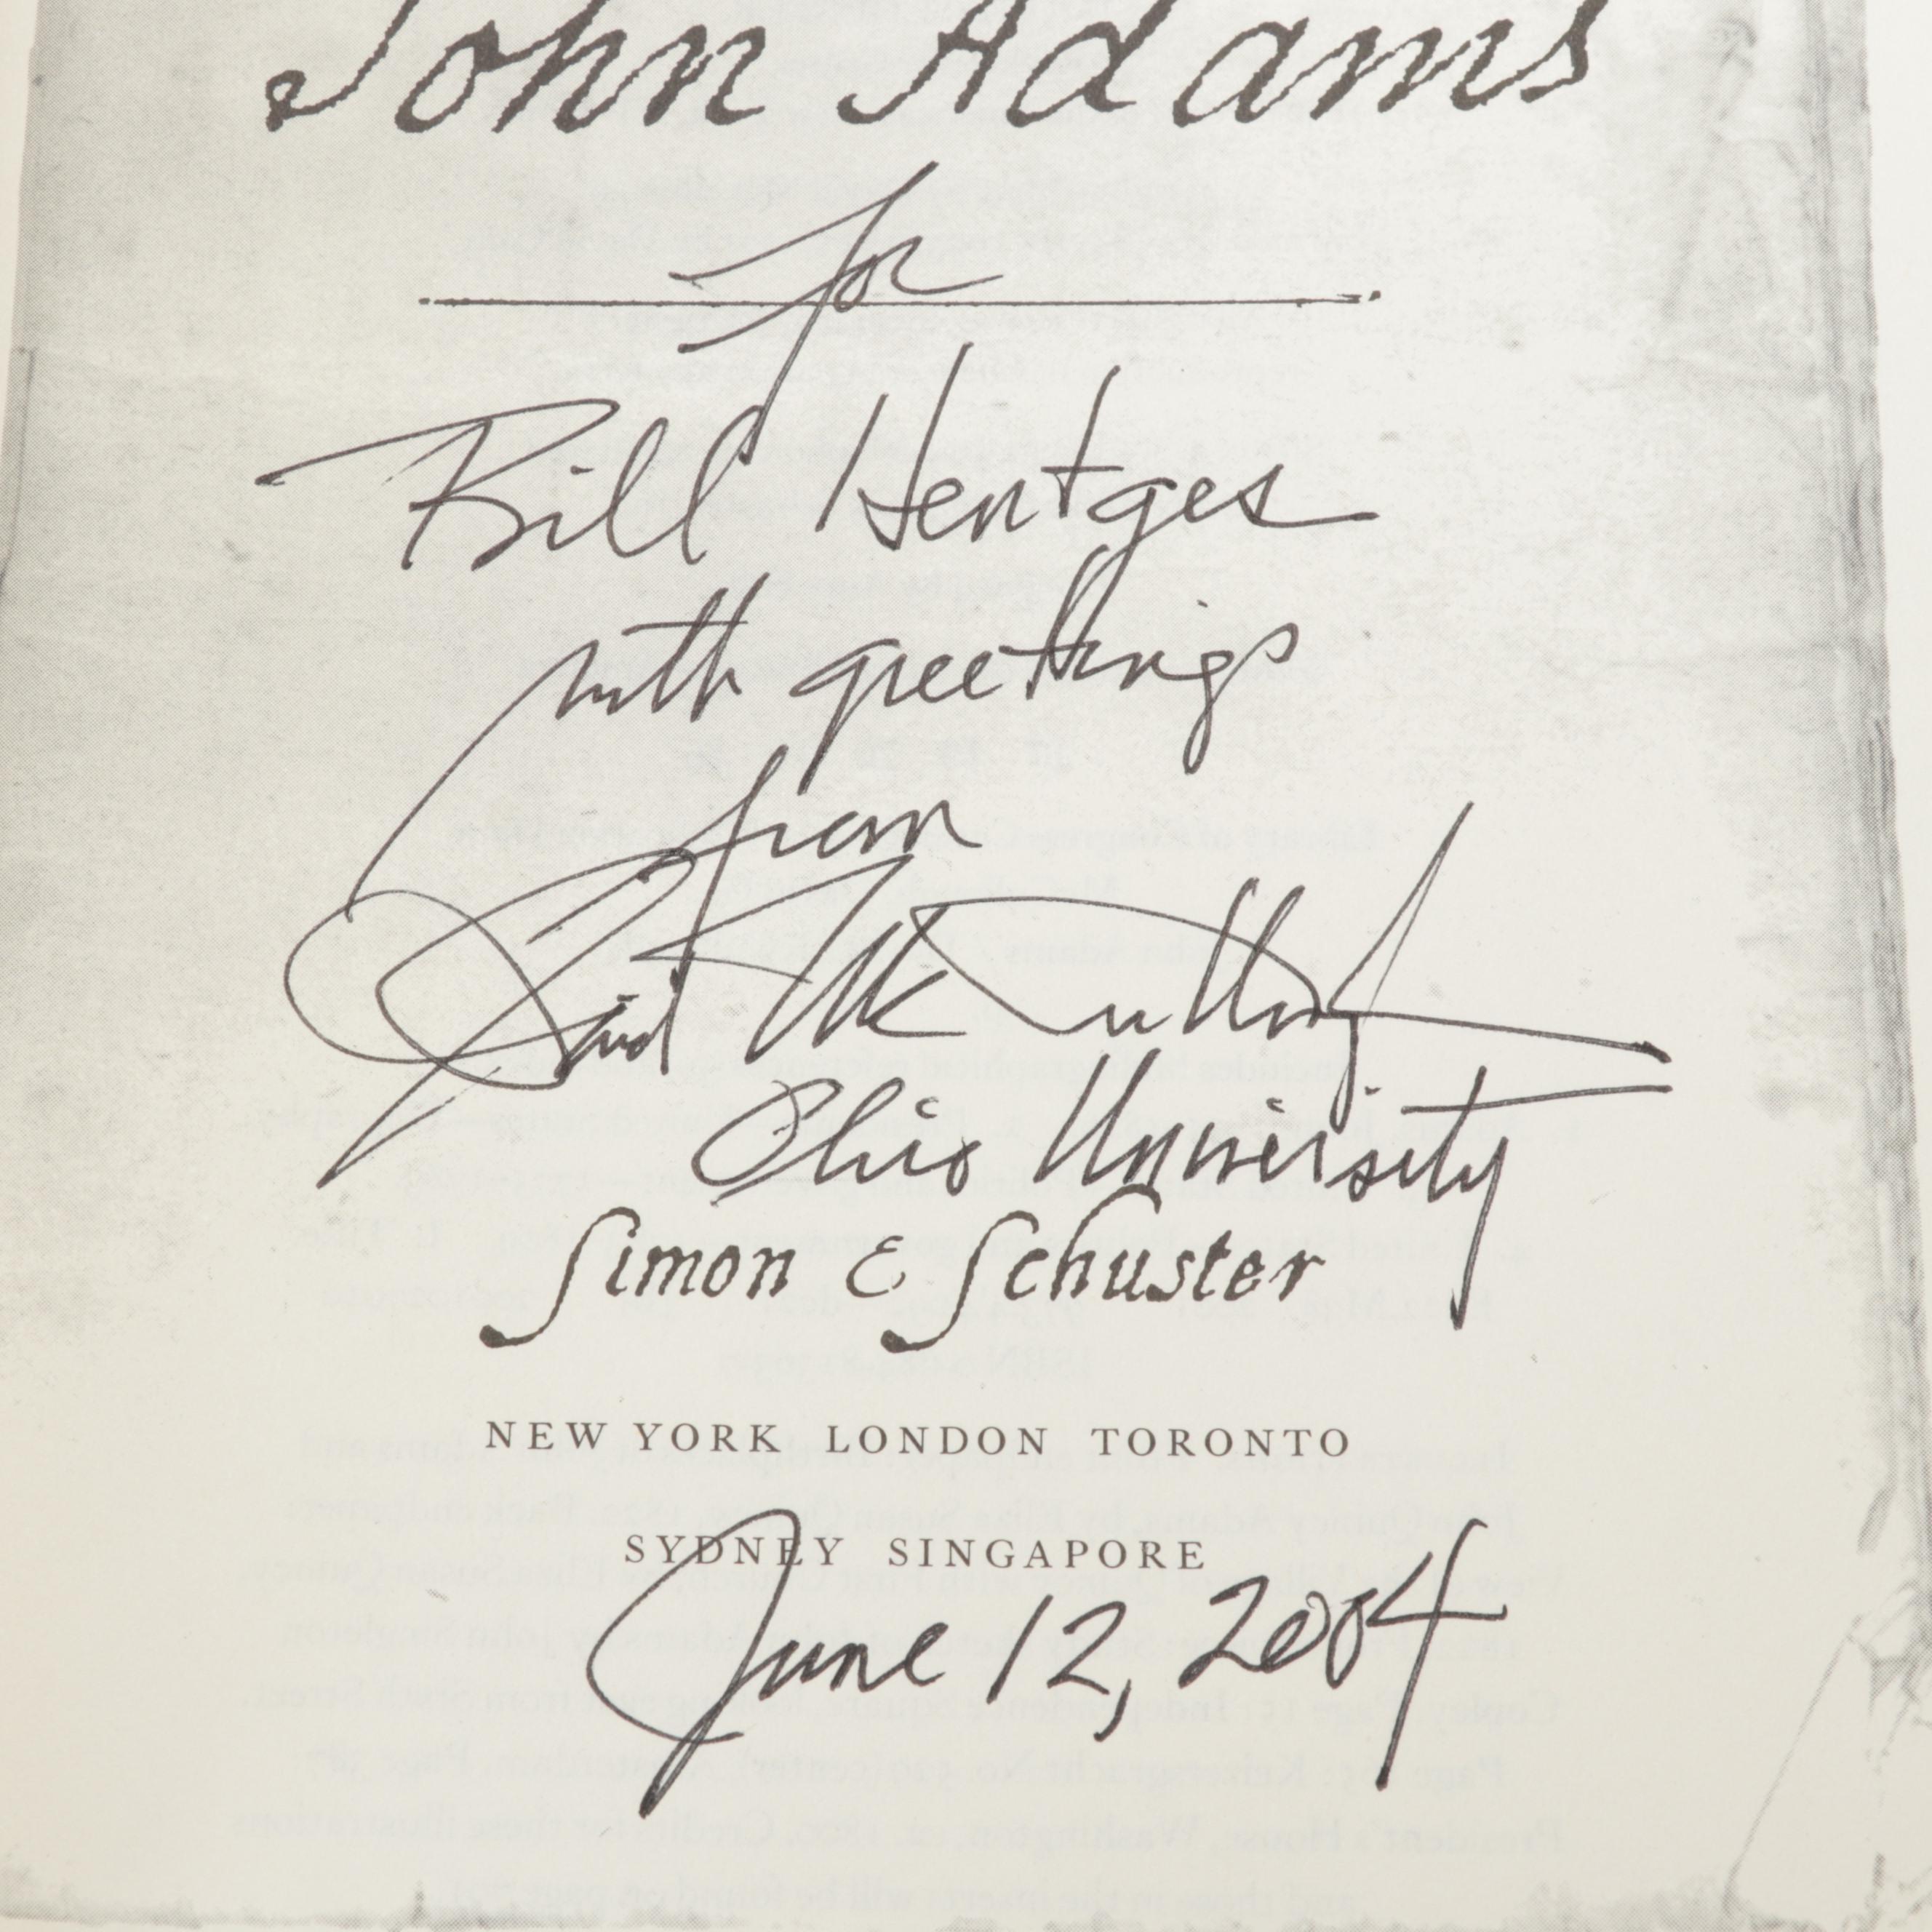 John Adams
for
Bill Hentges
with greetings
from
David McCullough
Ohio University
Simon & Schuster
NEW YORK LONDON TORONTO
SYDNEY SINGAPORE
June 12, 2004